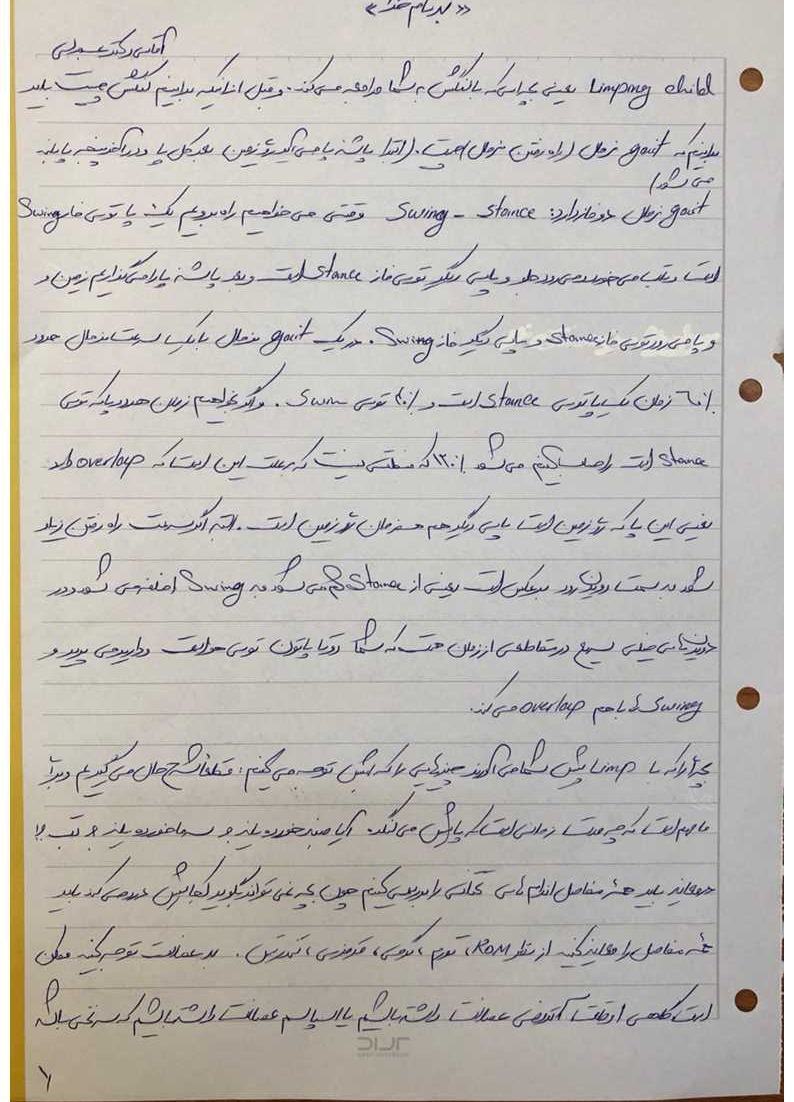 « بنام خدا »
آقای دکتر
Limping child یعنی بچه‌ای که با لنگش به شما مراجعه می‌کند. و قبل از اینکه بدانیم لنگش چیست باید
بدانیم که gait نرمال (راه رفتن نرمال) چیست. (ابتدا پاشنه پا می‌آید رو زمین بعد کل پا و در آخر پنجه پا بلند
می‌شود)
gait نرمال دو فاز دارد: Swing - Stance وقتی می‌خواهیم راه برویم یک پا توی فاز Swing
است و تاب می‌خورد می‌رود جلو و پای دیگر توی فاز Stance است و بعد پاشنه پا را می‌گذاریم زمین و
و پا می‌رود توی فاز Stance و پای دیگر فاز Swing. در یک gait نرمال با یک سرعت نرمال حدود
۶۰٪ زمان یک پا توی Stance است و ۴۰٪ توی Swin. و اگر بخواهیم زمان هر دو پا که توی
Stance است را حساب کنیم می‌شود ۱۲۰٪ که منطقی نیست که به علت این است که overlap دارد
یعنی این پا که رو زمین است پای دیگر هم همزمان رو زمین است. البته اگر سرعت راه رفتن زیاد
شود به سمت دویدن برود برعکس است یعنی از Stance کم می‌شود به Swing اضافه می‌شود و در
دویدن‌های خیلی سریع در مقاطعی از زمان هست که شما دو تا پاتون توی هواست و دارید می‌پرید و
Swing ها با هم overlap می‌کند.
بچه‌ای را که با Limp پیش شما می‌آورند چیزهایی را که بهش توجه می‌کنیم: قطعا شرح حال می‌گیریم و برای
ما مهم است که چه مدت زمانی است که پاش می‌لنگد. آیا ضربه خورده یا نه و سرما خورده یا نه و تب و!
در معاینه باید همه مفاصل اندام‌های تحتانی را بررسی کنیم چون بچه نمی‌تواند بگوید کجاش درد می‌کند باید
همه مفاصل را معاینه کنید از نظر ROM، تورم، گرمی، قرمزی، تندرنس. به عضلات توجه کنید ممکن
است گاهی اوقات آتروفی عضلات داشته باشیم یا اسپاسم عضلات داشته باشیم که سفتی باشه
۱